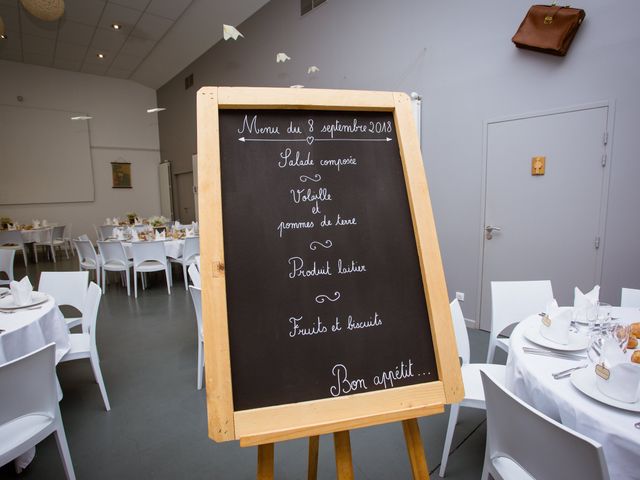 Menu du 8 septembre 2018
Salade composée
Volaille
et
pommes de terre
Produit laitier
Fruits et biscuits
Bon appétit...